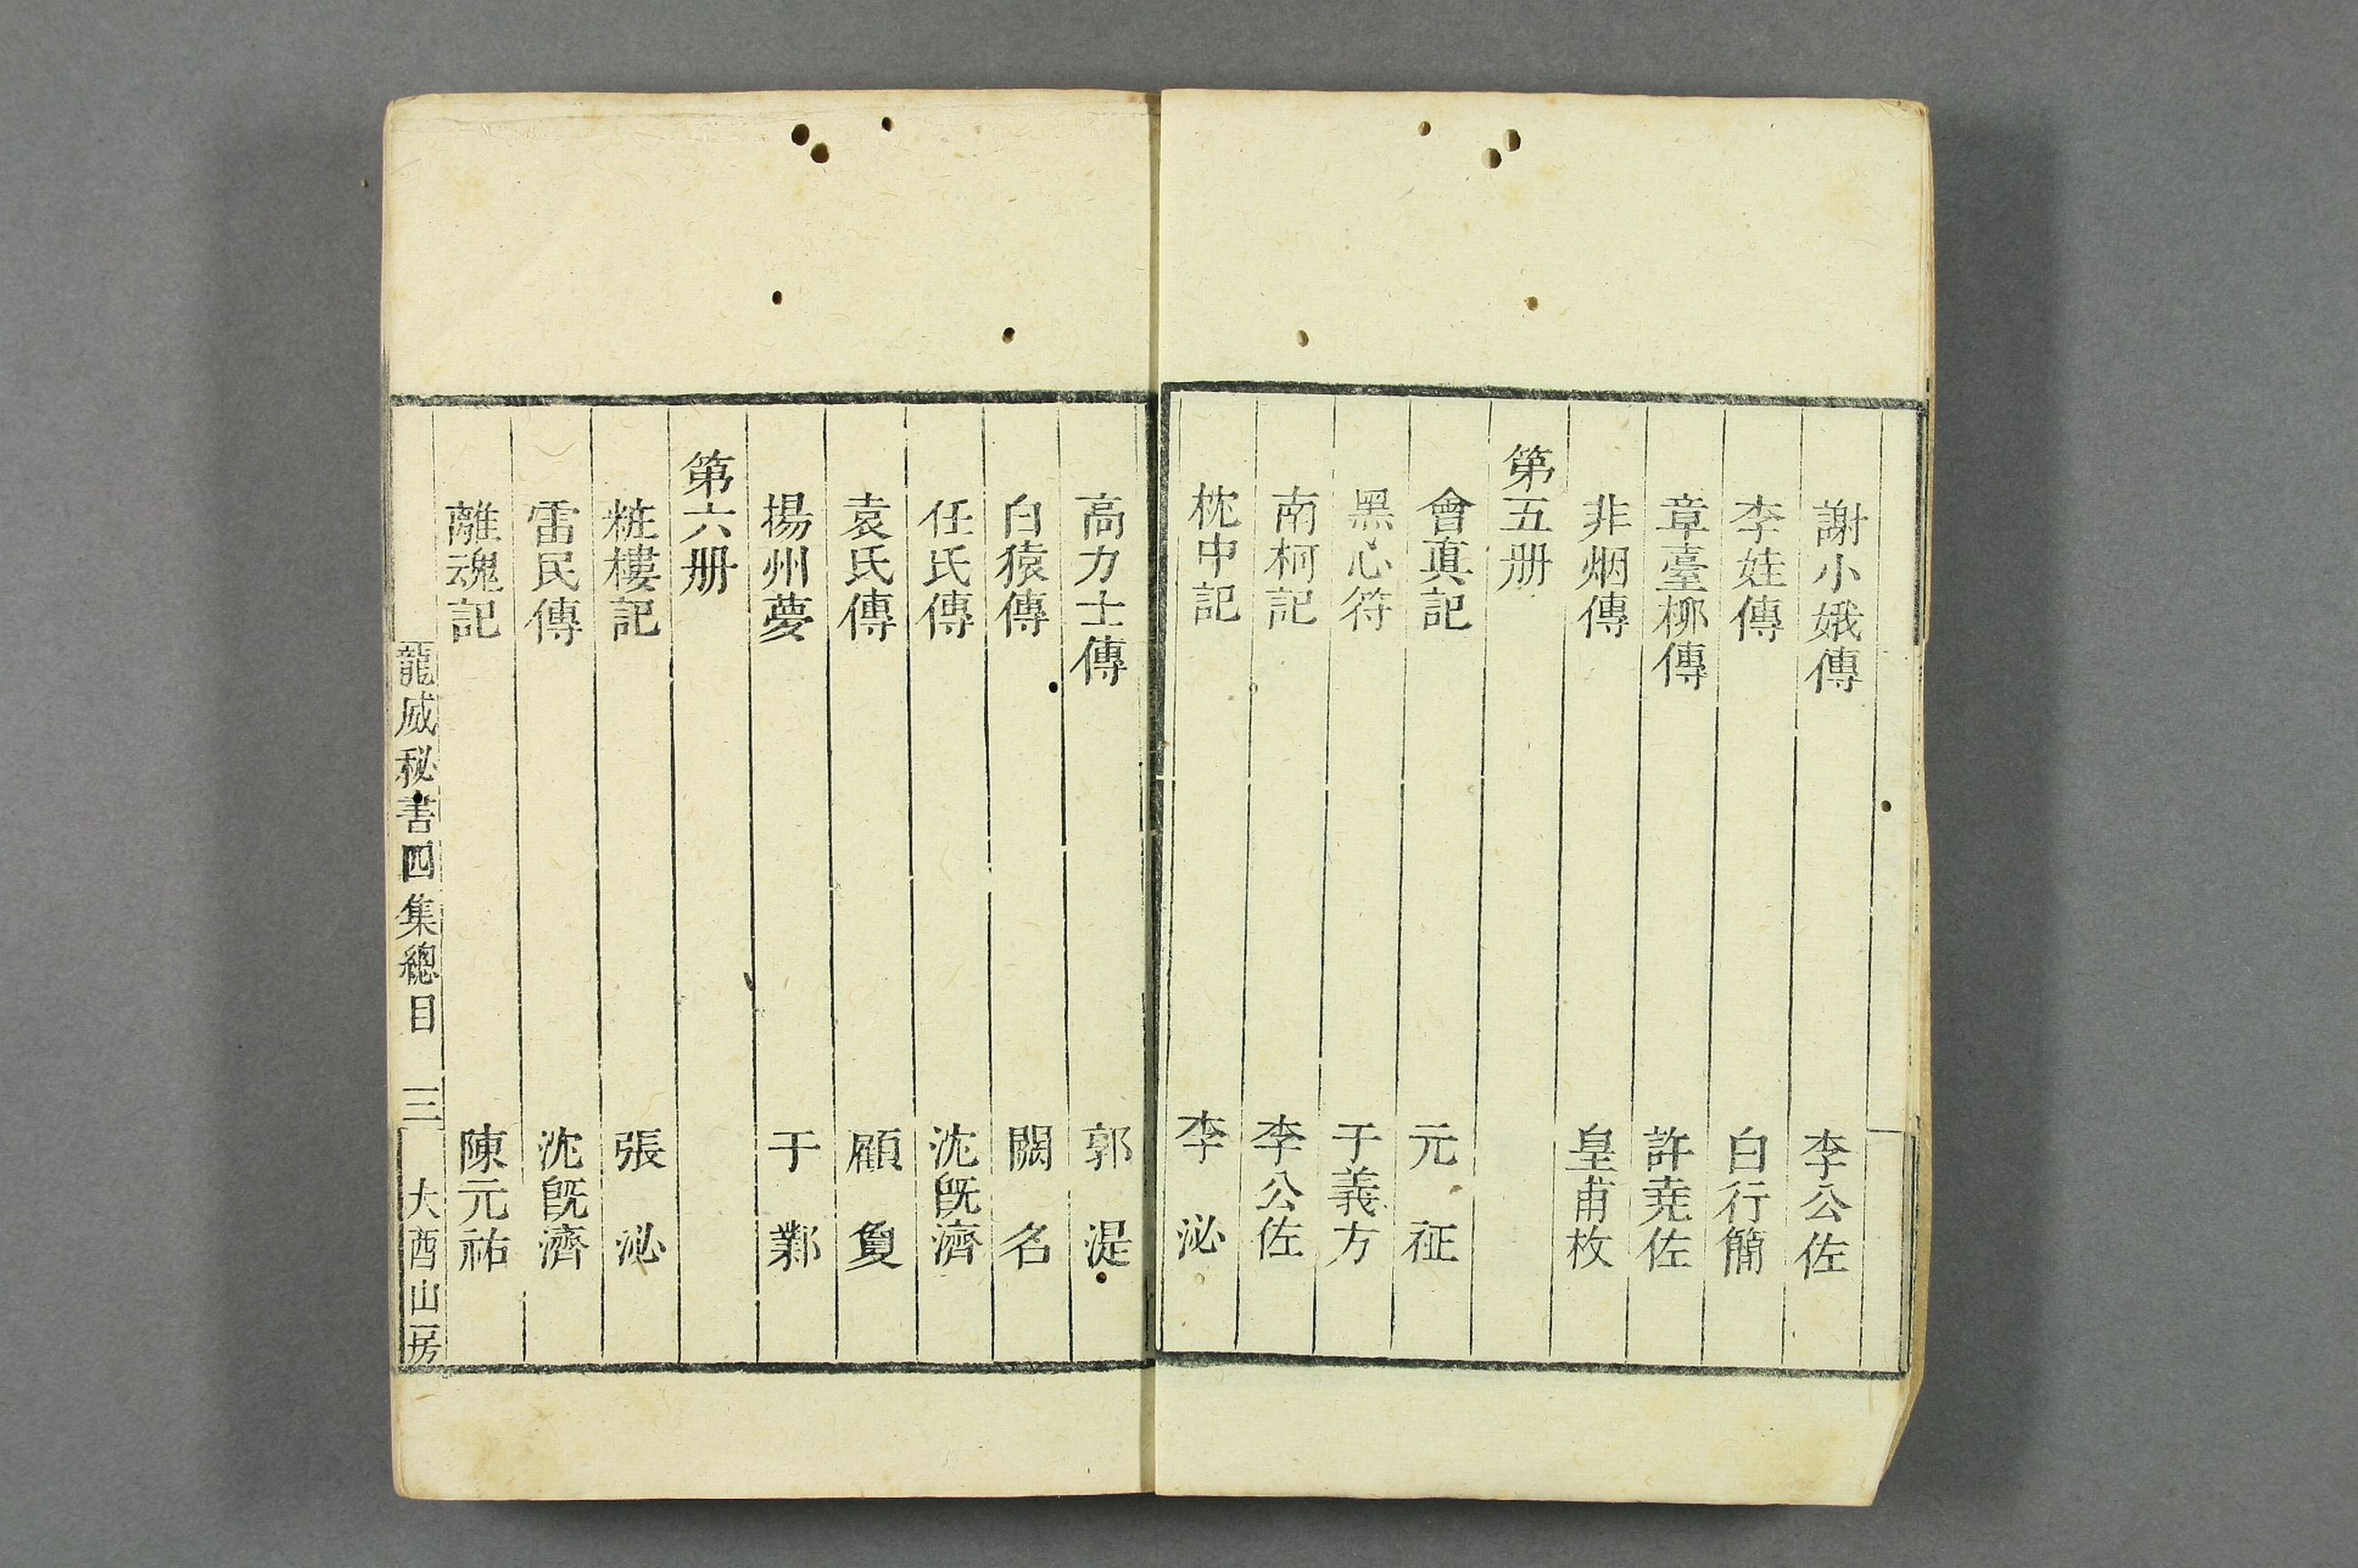 謝小娥傳 李公佐
李娃傳 白行簡
章臺柳傳 許堯佐
非烟傳 皇甫枚
第五册
會眞記 元 𥘉
黑心符 于義方
南柯記 李公佐
枕中記 李 泌
高力士傳 郭 湜
白猿傳 闕 名
任氏傳 沈旣濟
袁氏傳 顧 敻
揚州夢 于 鄴
第六册
粧樓記 張 泌
雷民傳 沈旣濟
離魂記 陳元祐
龍威秘書四集總目 三 大酉山房